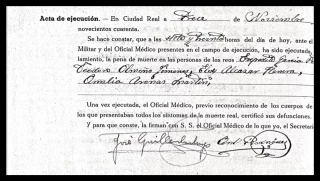 Acta de ejecución. — En Ciudad Real a Doce de Noviembre
novecientos cuarenta.
Se hace constar, que a las siete y treinta horas del día de hoy, ante el
Militar y del Oficial Médico presentes en el campo de ejecución, ha sido ejecutada
lamiento, la pena de muerte en las personas de los reos,
Teodoro Olmeño Jimenez, Eloy Alcazar
Amalia Arenas Martin,
Una vez ejecutada, el Oficial Médico, previo reconocimiento de los cuerpos de
los que presentaban todos los síntomas de la muerte real, certificó sus defunciones.
Y para que conste, la firman con S. S. el Oficial Médico de lo que yo, el Secretari
José